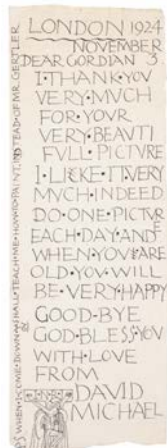 LONDON 1924
NOVEMBER
DEAR GORDIAN 3.
I·THANK·YOU
VERY·MUCH
FOR·YOUR
VERY·BEAUTI
FUL·PICTURE
I·LIKE·IT·VERY
MUCH·INDEED
DO·ONE·PICTURE
EACH·DAY·AND
WHEN·YOU·ARE
OLD·YOU·WILL
BE·VERY·HAPPY
GOOD-BYE
GOD·BLESS·YOU
WITH·LOVE
FROM
DAVID
MICHAEL
PS WHEN·I·COME·DOWN·YOU·SHALL·TEACH·ME·HOW·TO·PAINT·INSTEAD·OF·MR·GERTLER